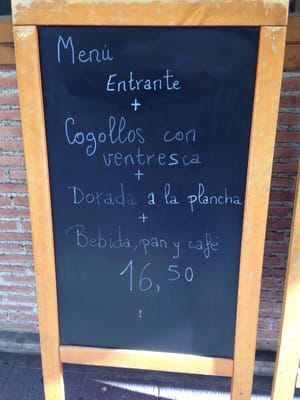 Menú
Entrante
+
Cogollos con
ventresca
+
Dorada a la plancha
+
Bebida, pan y café
16,50